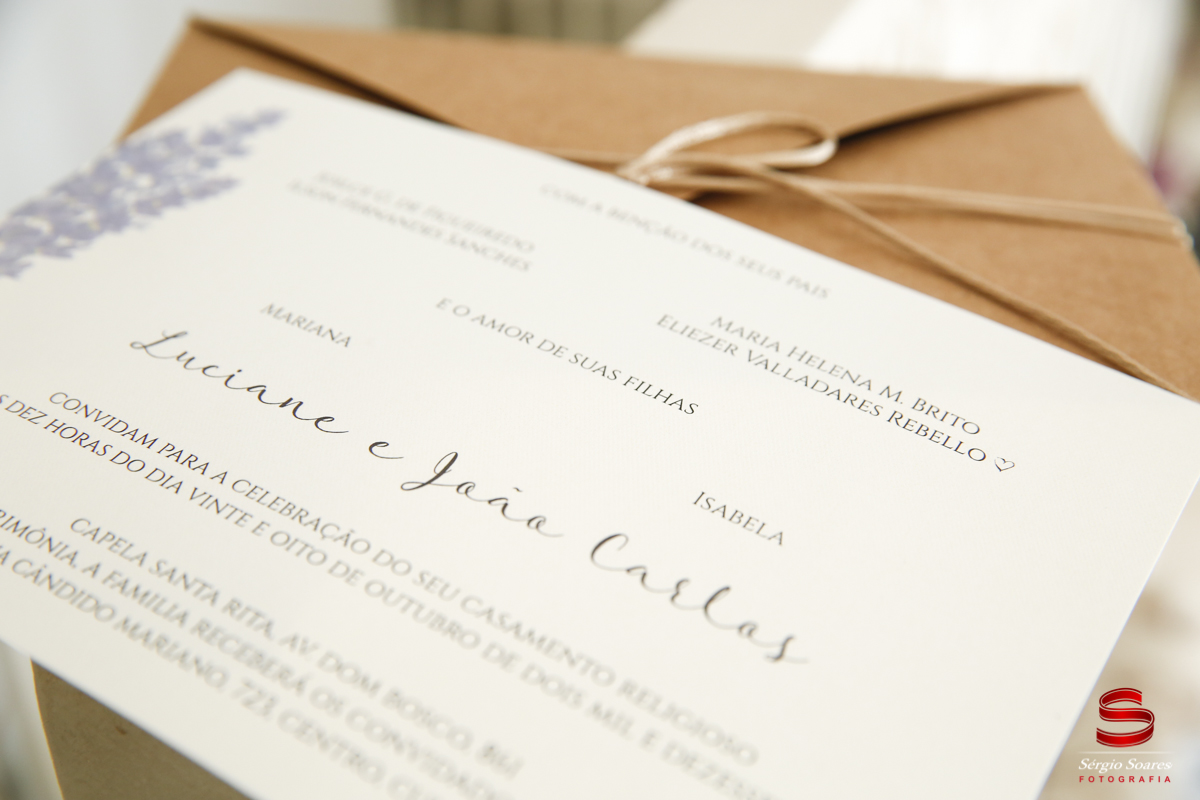 COM A BENÇÃO DOS SEUS PAIS
G. DE FIGUEIREDO
FERNANDES SANCHES
MARIA HELENA M. BRITO
ELIEZER VALLADARES REBELLO ♡
E O AMOR DE SUAS FILHAS
MARIANA
ISABELA
Luciane e João Carlos
CONVIDAM PARA A CELEBRAÇÃO DO SEU CASAMENTO RELIGIOSO
DEZ HORAS DO DIA VINTE E OITO DE OUTUBRO DE DOIS MIL E
CAPELA SANTA RITA, AV DOM BOSCO, 861
A FAMILIA RECEBERÁ OS
CÂNDIDO MARIANO, 723, CENTRO,
Sérgio Soares
FOTOGRAFIA